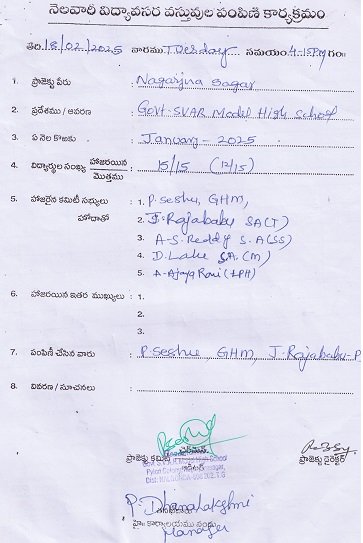 నెలవారీ విద్యావసర వస్తువుల పంపిణి కార్యక్రమం
తేది: 18/02/2025 వారము T.Desday సమయం 4-15PM గం॥
1. ప్రాజెక్టు పేరు : Nagarjuna Sagar
2. ప్రదేశము / ఆవరణ : Govt-SVAR Model High School
3. ఏ నెల కొఱకు : January - 2025
4. విద్యార్థుల సంఖ్య హాజరయిన/మొత్తము : 15/15 (12/15)
5. హాజరైన కమిటీ సభ్యులు : 1. P. Seshu, GHM,
హోదాతో 2. J. Rajababu SA(T)
3. A-S. Reddy S.A(SS)
4. D. Lake S.A. (M)
5. A-Ajaya Rani (LPH)
6. హాజరయిన ఇతర ముఖ్యులు : 1.
2.
3.
7. పంపిణీ చేసిన వారు : P. Seshu GHM, J. Rajababu-P
8. వివరణ / సూచనలు :
ప్రాజెక్టు కమిటీ చైర్మన్
ప్రాజెక్టు డైరెక్టర్
P. Dhanalakshmi
Manager